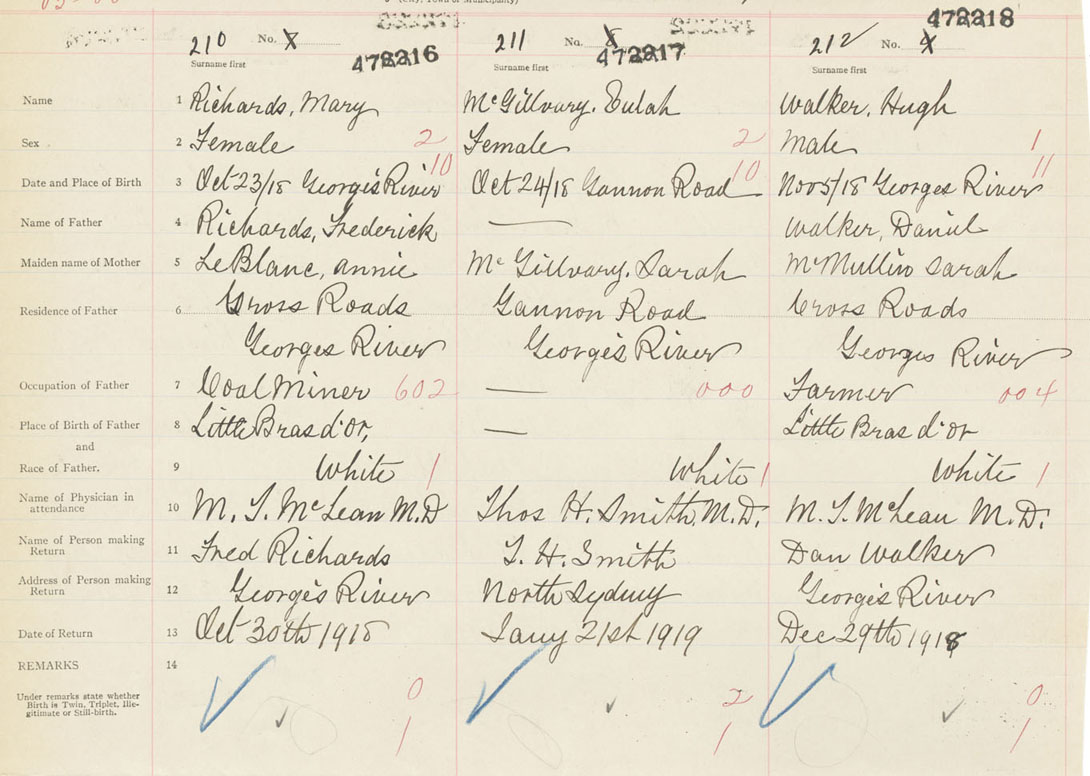 (City, Town or Municipality)
210 No. X 472216
Surname first
211 No. X 472217
Surname first
212 No. X 472218
Surname first
Name 1 Richards, Mary
McGillvary, Eulah
Walker, Hugh
Sex 2 Female 2
Female 2
Male 1
Date and Place of Birth 3 Oct 23/18 George's River 10
Oct 24/18 Gannon Road 10
Nov 5/18 Georges River 11
Name of Father 4 Richards, Frederick
—
Walker, Daniel
Maiden name of Mother 5 LeBlanc, Annie
McGillvary, Sarah
McMullin Sarah
Residence of Father 6 Cross Roads
Georges River
Gannon Road
George's River
Cross Roads
Georges River
Occupation of Father 7 Coal Miner 602
— 000
Farmer 004
Place of Birth of Father 8 Little Bras d'Or,
—
Little Bras d'Or
and
Race of Father. 9 White 1
White 1
White 1
Name of Physician in
attendance 10 M. T. McLean M.D
Thos H. Smith, M.D.
M. T. McLean M.D.
Name of Person making
Return 11 Fred Richards
T. H. Smith
Dan Walker
Address of Person making
Return 12 George's River
North Sydney
George's River
Date of Return 13 Oct 30th 1918
Jany 21st 1919
Dec 29th 1918
REMARKS 14
Under remarks state whether
Birth is Twin, Triplet, Ille-
gitimate or Still-birth.
0
1
2
1
0
1